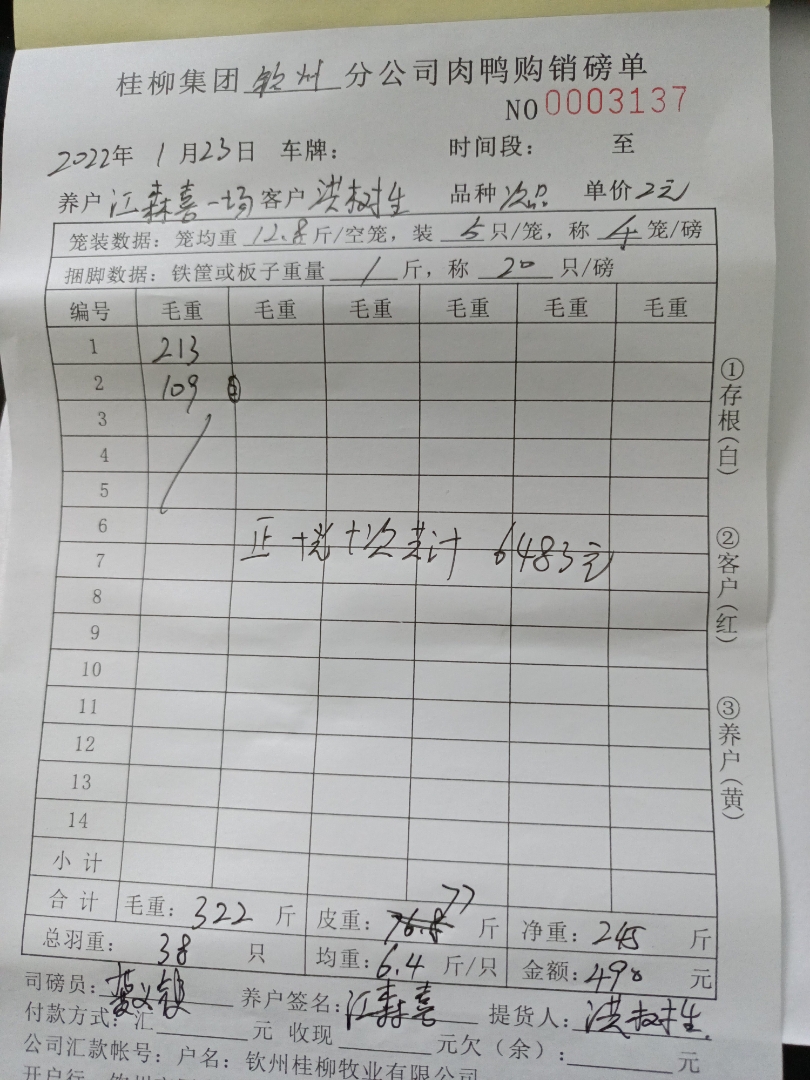 桂柳集团 钦州 分公司肉鸭购销磅单
NO 0003137
2022年 1月23日 车牌： 时间段： 至
养户 江森喜一场 客户 洪树生 品种 次品 单价 2元
笼装数据：笼均重 12.8 斤/空笼，装 5 只/笼，称 4 笼/磅
捆脚数据：铁筐或板子重量 1 斤，称 20 只/磅
编号 毛重 毛重 毛重 毛重 毛重 毛重
1 213
2 109
3
4
5
6
正+光+次共计 6483元
7
8
9
10
11
12
13
14
小计
合计 毛重：322 斤 皮重：76.8 77 斤 净重：245 斤
总羽重：38 只 均重：6.4 斤/只 金额：490 元
司磅员： 养户签名：江森喜 提货人：洪树生
付款方式：汇 元 收现 元欠（余）： 元
公司汇款帐号：户名：钦州桂柳牧业有限公司
开户行：
①存根(白)
②客户(红)
③养户(黄)